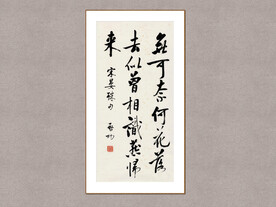 無可奈何花落
去似曾相識燕歸
来
宋晏殊句
啟功